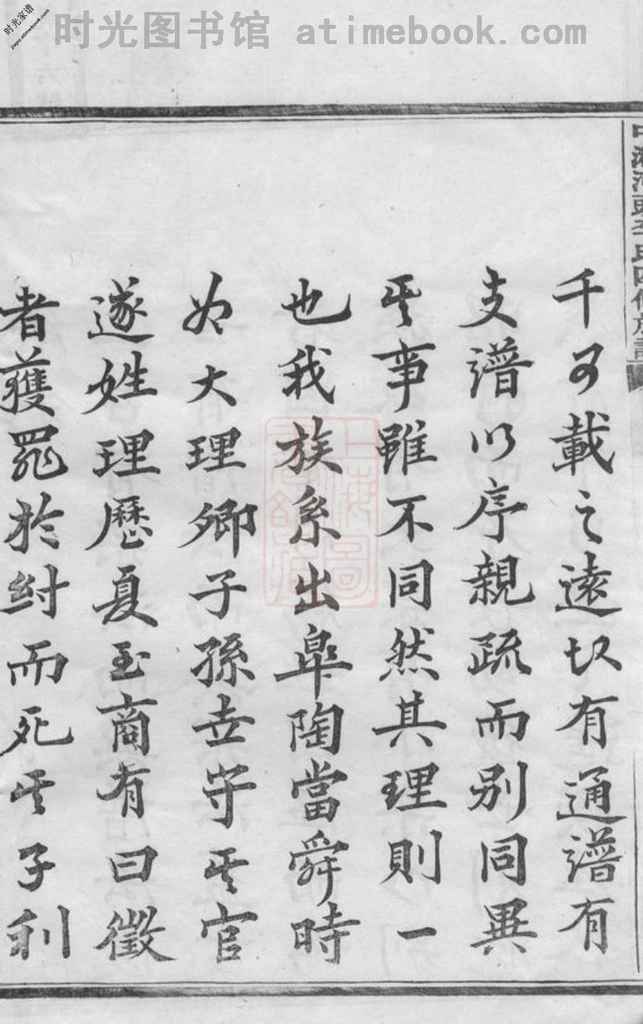 时光图书馆 atimebook.com
时光家谱
李氏四修族譜
千載之遠故有通譜有
支譜以序親疏而别同異
其事雖不同然其理則一
也我族系出皐陶當舜時
為大理卿子孫世守其官
遂姓理歷夏至商有曰徵
者獲罪於紂而死其子利